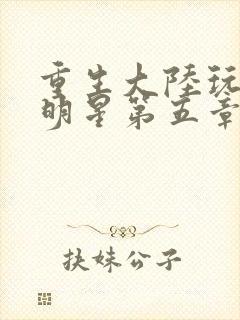 重生大陸玩
明星第五章
扶妹公子